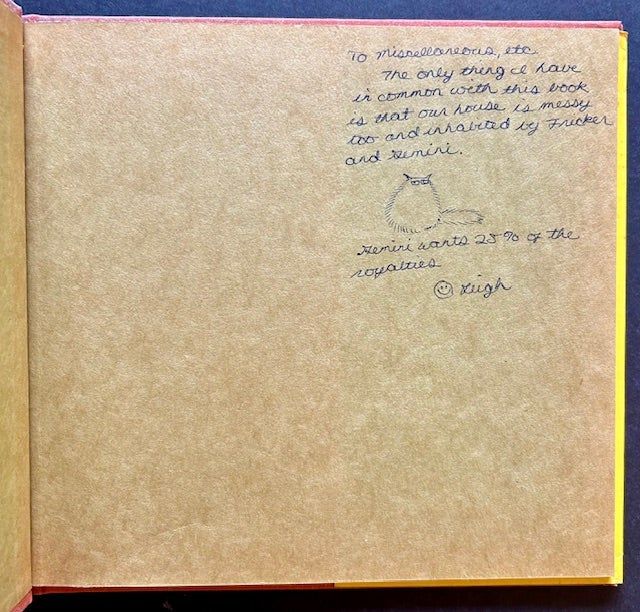 To Miscellaneous, etc.
The only thing I have
in common with this book
is that our house is messy
too and inhabited by Fricker
and Gemini.
Gemini wants 25% of the
royalties
Leigh